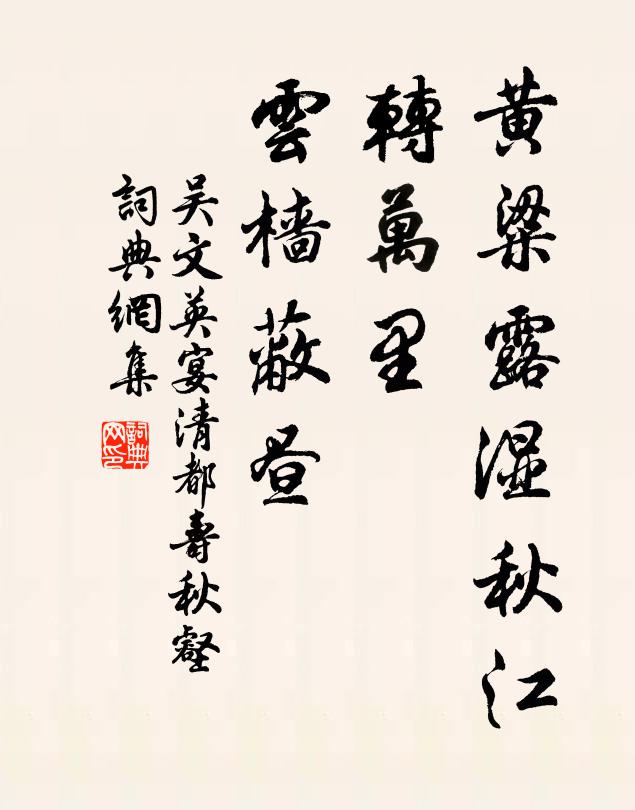 黄粱露濕秋江
轉萬里
雲檣蔽晝
吴文英宴清都壽秋壑
詞典網集
詞典
网印